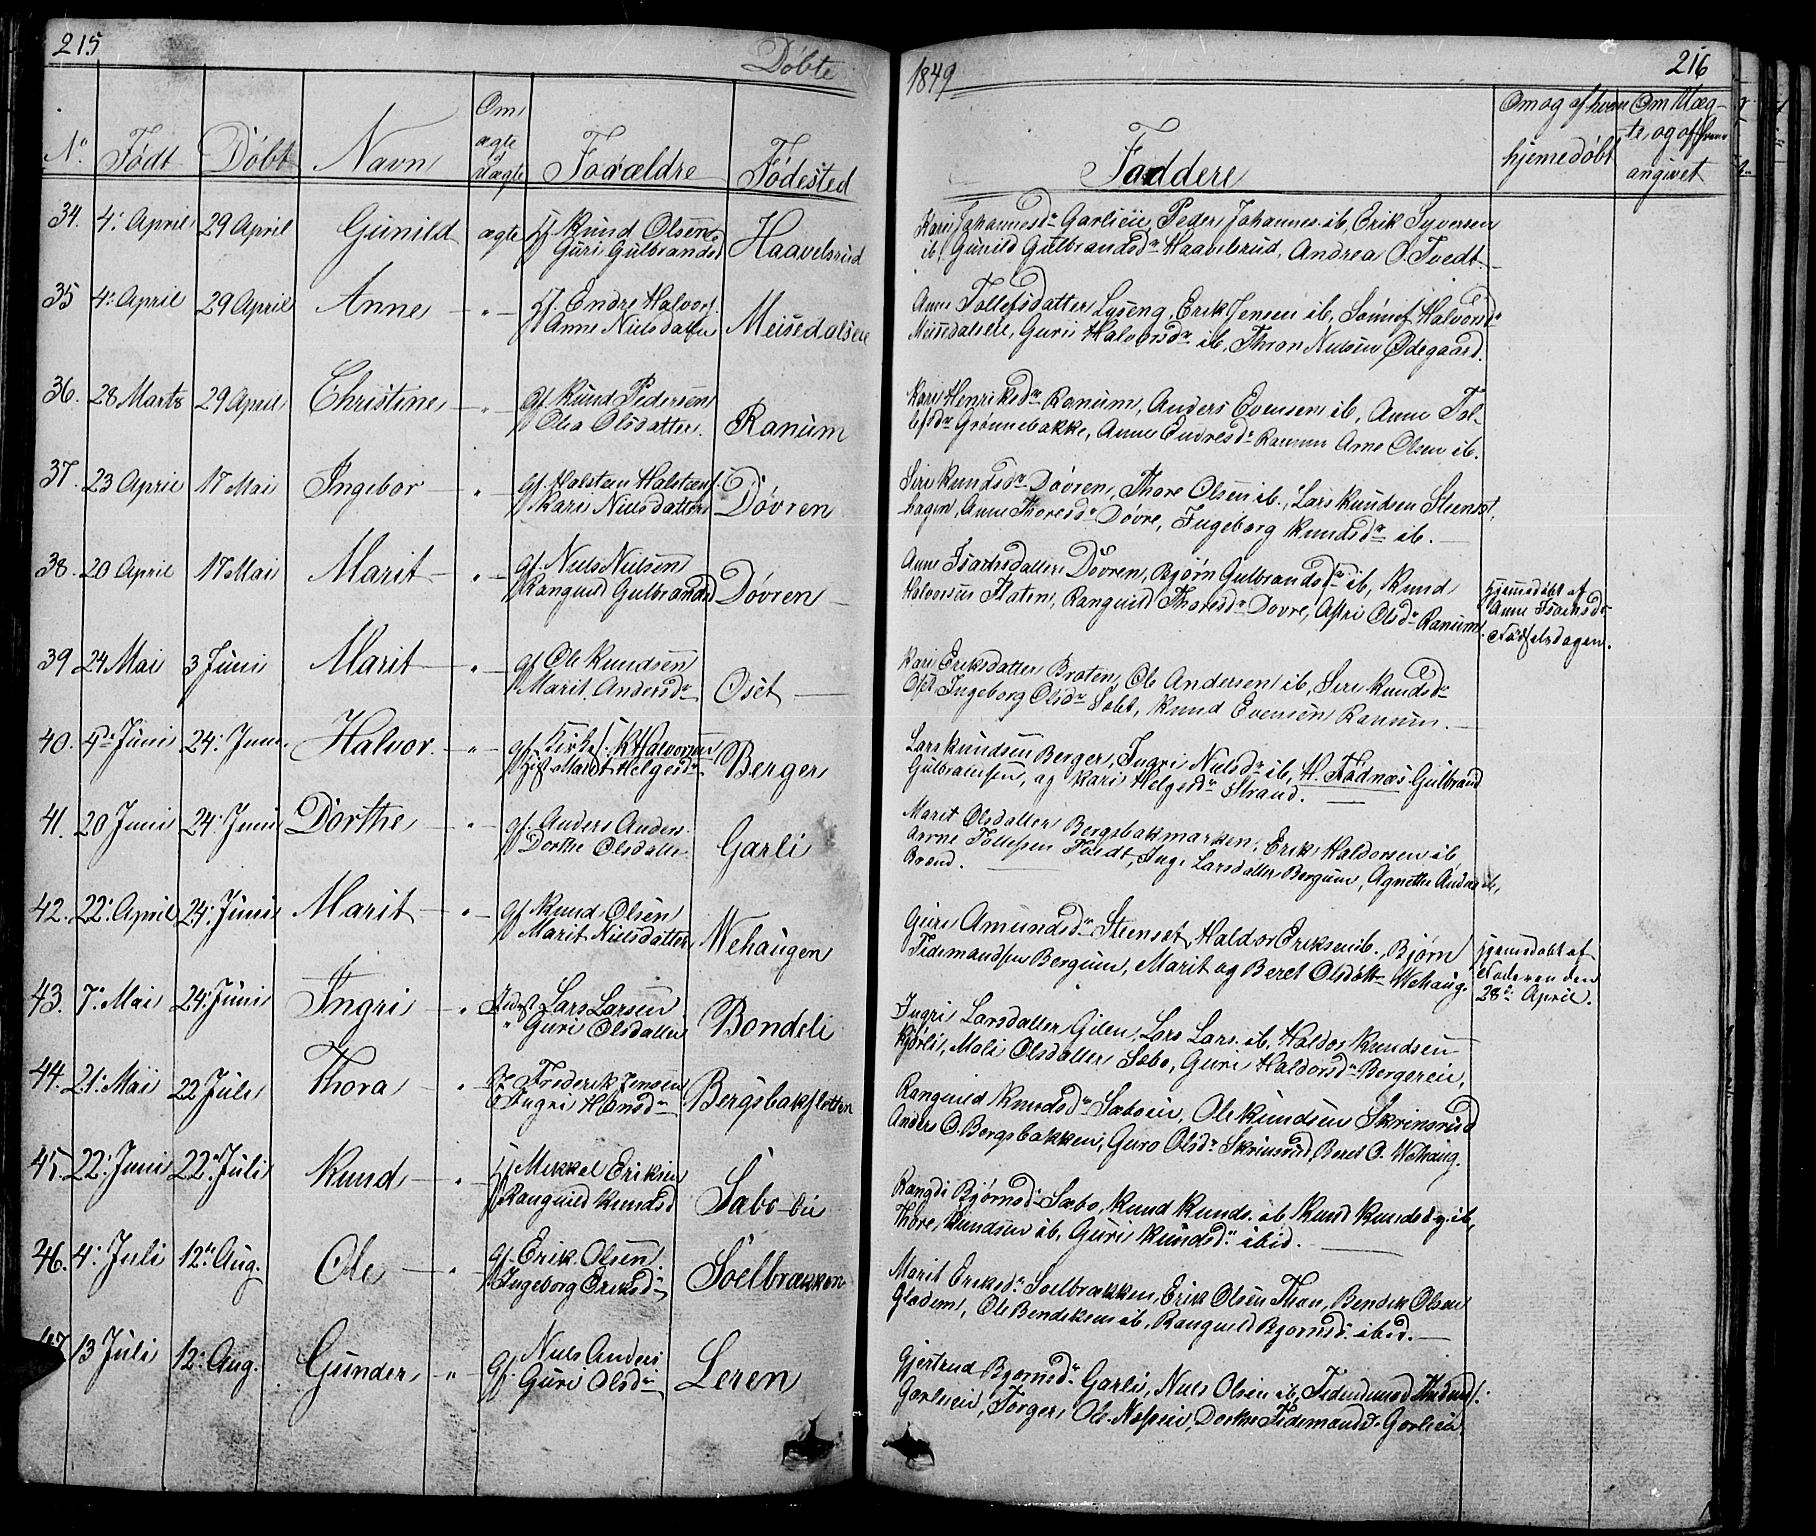 215
Döbte
1849
216
No. Födt Döbt Navn Om ægte el. uægte Forældre Födested
Faddere
Om og af hvem hjemedöbt
Om Mæg- te, og af hvem angivet
34. 4. April 29 April Gunild ægte gf. Knud Olsen Haavelsrud
Guri Gulbrandsd
Kari Johannesd. Garlieie, Peder Johannes. ib, Erik Syversen
ib, Gunild Gulbrandsd. Haavelsrud, Andrea O. Tvedt.
35 4. April 29 April Anne - " - gf. Endre Halvors. Meisedalseie
Anne Nielsdatter
Anne Tollefsdatter Lyseng, Erik Jensen ib, Sönnef Halvorsd.
Meisedalseie, Guri Halvorsd. ib, Thron Nielsen Ödegaard.
36. 28 Marts 29 April Christine - " - gf. Knud Pedersen Ranum
Olea Olsdatter.
Kari Henriksd. Ranum, Anders Evensen ib, Anne Tol-
lefsd. Grönnebakke, Anne Endresd. Ranum Arne Olsen ib.
37. 23 April 17 Mai Ingebor - " - gf. Halsten Halstens. Dövren
Kari Nielsdatter
Siri Knudsd. Dövren, Thore Olsen ib., Lars Knudsen Steenset
hagen, Anne Thoresd. Dövre, Ingeborg Knudsd. ib.
38. 20 April 17 Mai Marit - " - gf. Niels Nielsen Dövren
Rangnild Gulbrandsd
Anne Isachsdatter Dövren, Björn Gulbrands. ib, Knud
Halvorsen Flaten, Rangnild Thoresd. Dovre, Astri Olsd. Ranum.
hjemedöbt af
Anne Isachsd.
Födselsdagen.
39 24 Mai 3 Juni Marit - " - gf. Ole Knudsen Oset
Marit Andersd.
Kari Eriksdatter Braten, Ole Andersen ib, Siri Knudsd.
Oset Ingeborg Olsd. Sobt, Knud Evensen Ranum.
40. 4. Juni 24. Juni. Halvor - " - gf. Kirkes. K Halvorsen Berger
Marit Helgesd.
Lars Knudsen Berger, Ingri Nielsd. ib, H. Fadnæs Gulbrand
Gulbrandsen, og Kari Helgesd. Strand.
41. 20 Juni 24. Juni Dorthe - " - gf. Anders Anders. Garli
Dorthe Olsdatter
Marit Olsdatter Bergsbakmarken, Erik Haldorsen ib,
Aarne Tollefsen Tvedt, Ing. Larsdatter Bergum, Agnethe
Brænd.
42. 22. April 24. Juni Marit - " - gf. Knud Olsen Wehaugen
Marit Nielsdatter
Guri Amundsd. Steenset, Haldor Eriksen ib., Björn
Tidemandsen Bergum, Marit og Beret Olsdött. Wehaug.
hjemedöbt af
Faderen den
28. April.
43. 7. Mai 24. Juni Ingri - " - Lars Larsen Bondeli
" Guri Olsdatter
Ingri Larsdatter Gilen, Lars Lars. ib. Haldor Knudsen
Kjörli, Mali Olsdatter Sæbo, Guri Haldorsd. Bergereie,
44. 21. Mai 22 Juli Thora - " - gf. Frederik Jensen Bergsbakfletten
Ingri Hansd.
Rangnild Knudsd. Sæboeie, Ole Knudsen Skrinsrud
Anders O. Bergsbakken, Guro Olsd. Skrinsrud, Beret O. Wehaug.
45. 22. Juni 22. Juli Knud - " - gf. Mikkel Eriksen Sæbo-eie
Rangnild Knudsd
Rangdi Björnsd. Sæbo, Knud Knuds. ib, Knud Knudsd. y. ib,
Thore Knudsen ib, Guri Knudsd. ibid.
46. 4. Juli 12. Aug. Ole - " - gf. Erik Olsen Söelbrækken
Ingeborg Eriksd.
Marit Eriksd. Soelbrækken, Erik Olsen Thon, Bendik Olsen
Glædem, Ole Bendiksen ib, Rangnild Bjornsd. ibid.
47 13 Juli 12. Aug. Gunder - " - gf. Niels Anders. Leren
Guri Olsd.
Gjertrud Bjornsd. Garli, Niels Olsen ib, Tidemand
Garlieie, Torger Ole Dorthe Tidemandsd. Garlieie